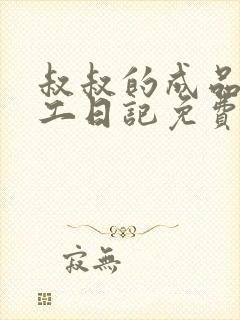 叔叔的成品
工日記免費
寂無